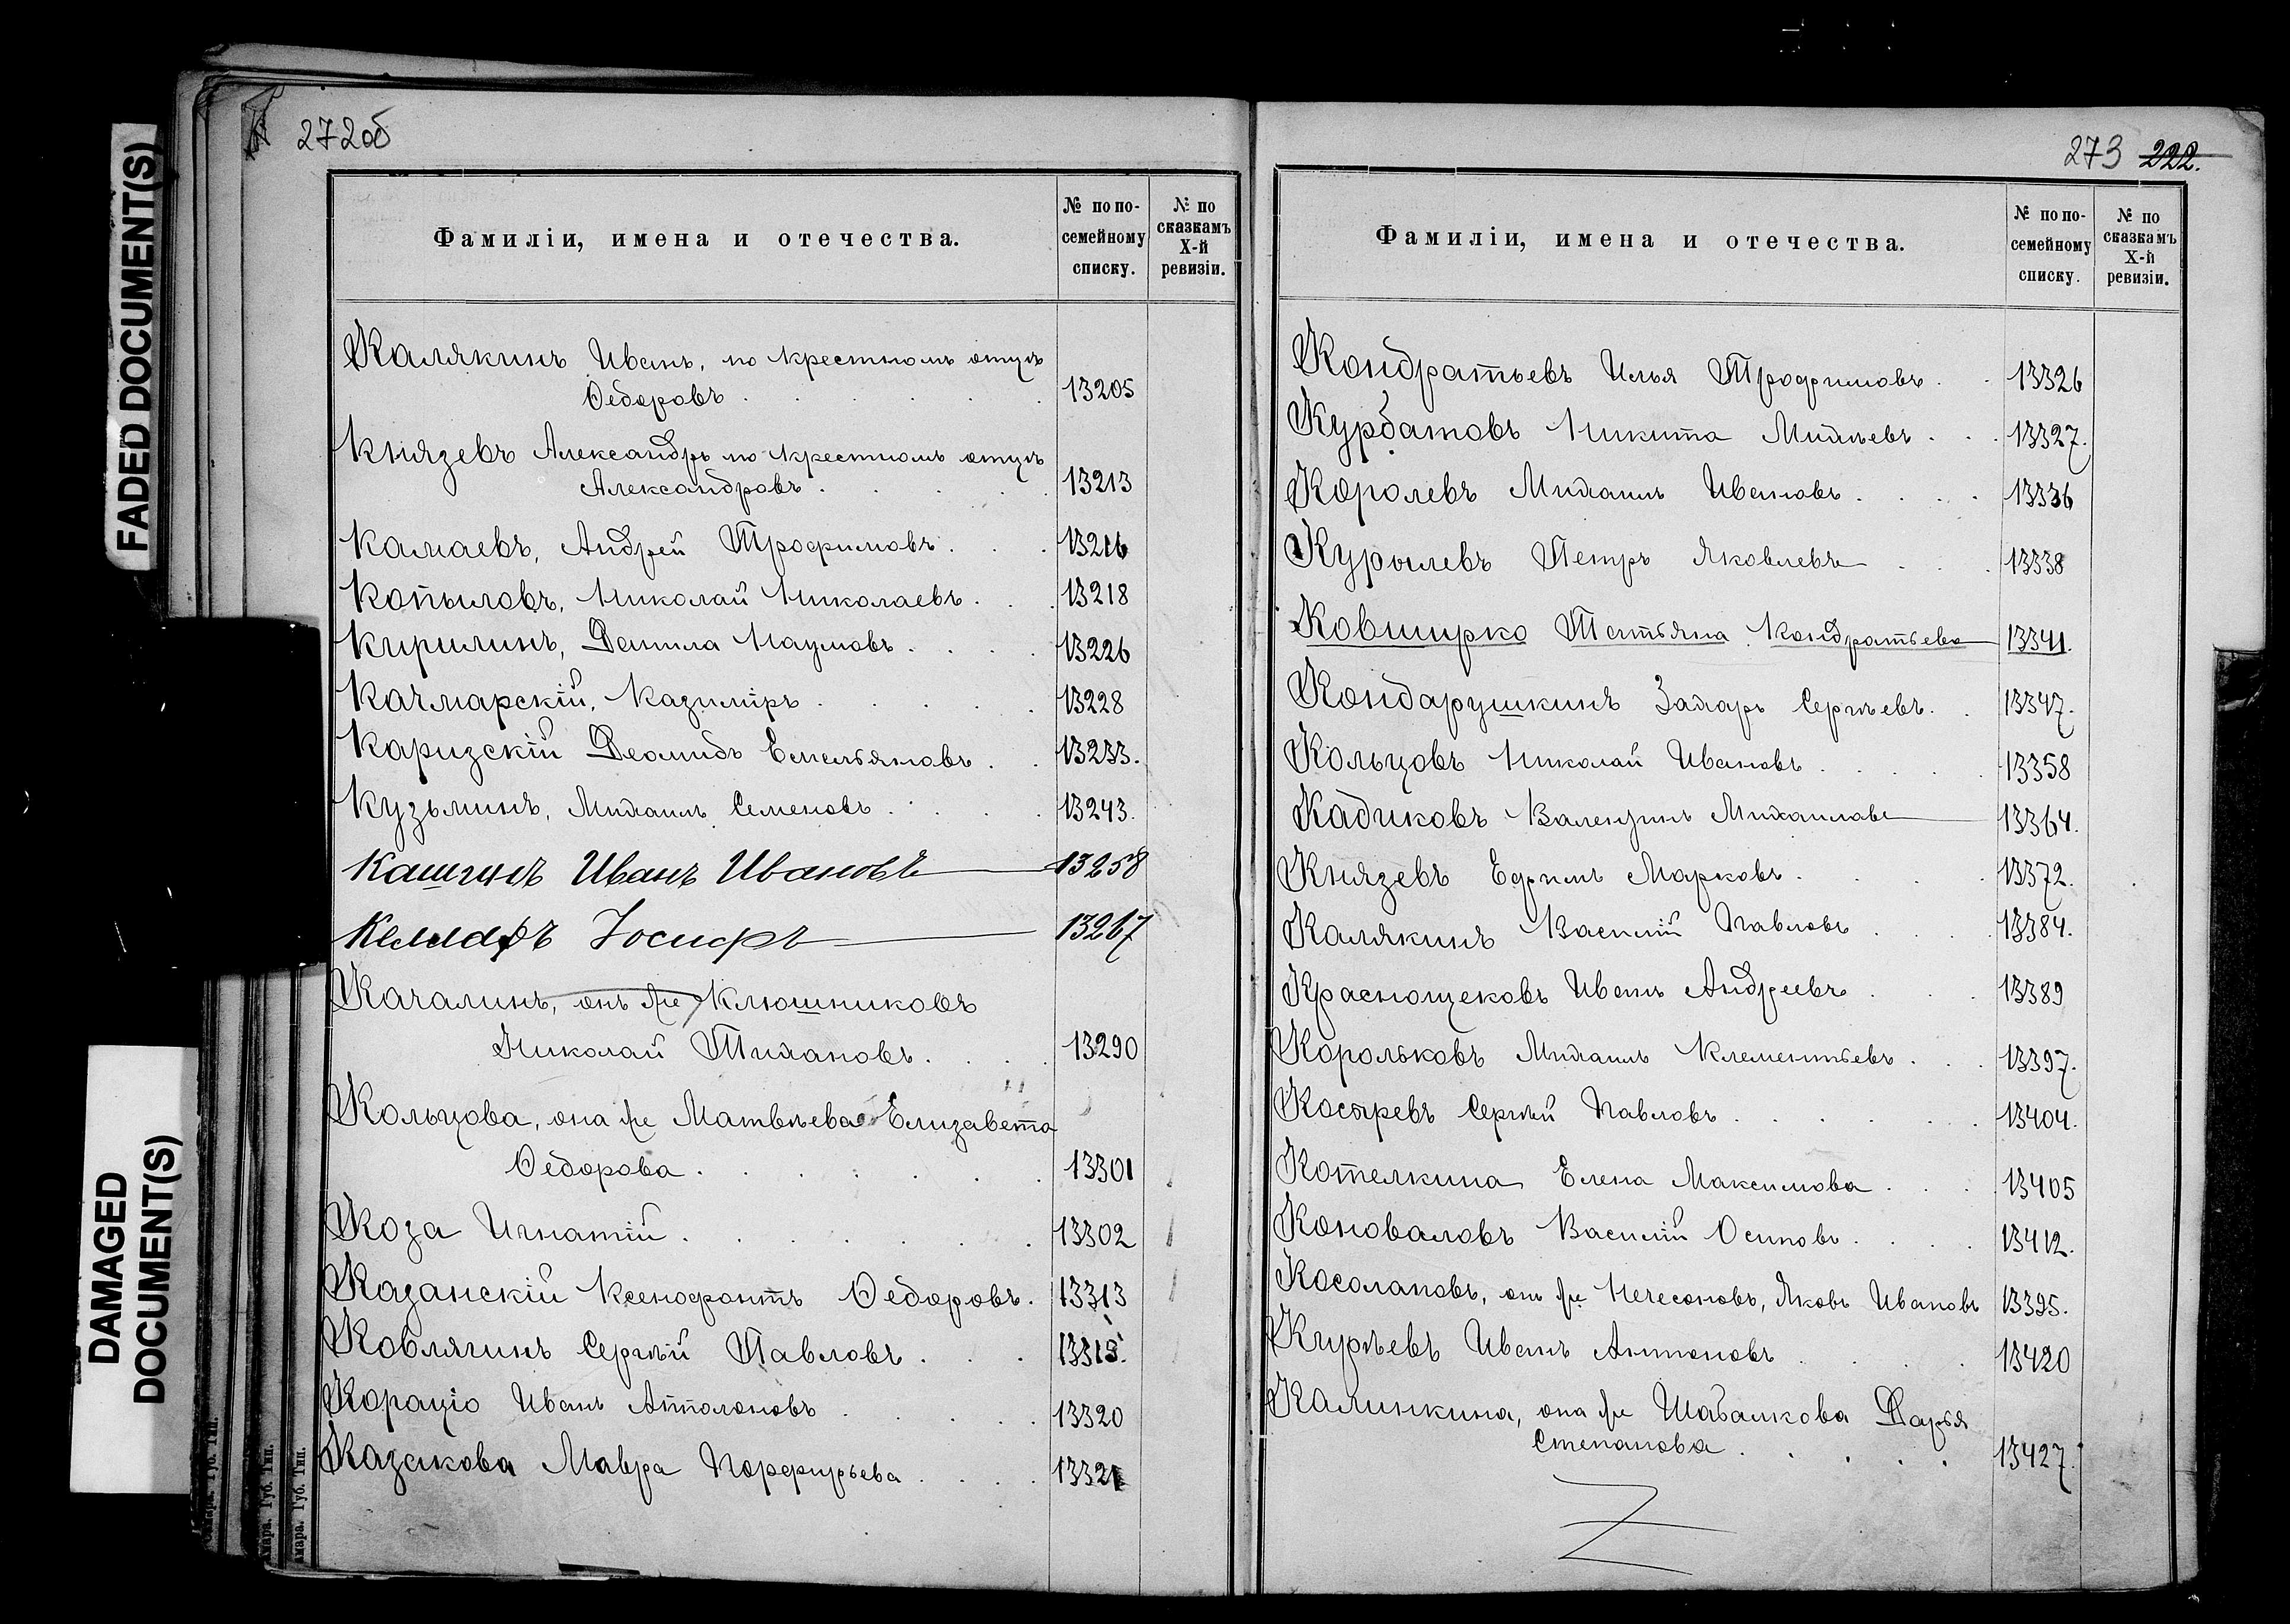 FADED DOCUMENT(S)
DAMAGED
DOCUMENT(S)
272об
Фамиліи, имена и отечества.
№ по по-
семейному
списку.
№ по
сказкамъ
X-й
ревизіи.
Калякинъ Иванъ, по крестномъ отцѣ
Ѳедоровъ 13205
Князевъ Александръ по крестномъ отцѣ
Александровъ 13213
Камаевъ, Андрей Трофимовъ 13216
Копыловъ, Николай Николаевъ 13218
Кирилинъ, Данила Наумовъ 13226
Качмарскій, Казиміръ 13228
Каризскій Деомидъ Емельяновъ 13233.
Кузьминъ, Михаилъ Семеновъ 13243.
Кашинъ Иванъ Ивановъ 13258
Іосифъ 13267
Качалинъ, онъ же Клюшниковъ
Николай Тихановъ 13290
Кольцова, она же Матвѣева Елизавета
Ѳедорова 13301
Коза Игнатій 13302
Казанскій Ксенофонтъ Ѳедоровъ. 13313
Ковлягинъ Сергѣй Павловъ 13315.
Корацио Иванъ Апполоновъ 13320
Казакова Мавра Порфирьева 13321
Самара. Губ. Тип.
273 222.
Фамиліи, имена и отечества.
№ по по-
семейному
списку.
№ по
сказкамъ
X-й
ревизіи.
Кондратьевъ Илья Трофимовъ 13326
Курбатовъ Никита Михѣевъ 13327.
Королевъ Михаилъ Ивановъ 13336
Курылевъ Петръ Яковлевъ 13338
Ковширко Татьяна Кондратьева 13341.
Кондарушкинъ Захаръ Сергѣевъ. 13347.
Кольцовъ Николай Ивановъ 13358
Кадиковъ Валенцинъ Михаиловъ 13364.
Князевъ Ефимъ Марковъ 13372.
Калякинъ Василій Павловъ 13384.
Краснощековъ Иванъ Андреевъ 13389
Корольковъ Михаилъ Клементьевъ 13397.
Костревъ Сергѣй Павловъ 13404.
Котелкина Елена Максимова 13405
Коноваловъ Василій Осиповъ 13412.
Косолаповъ, онъ же Нечесоновъ, Яковъ Ивановъ 13395.
Курѣевъ Иванъ Антоновъ 13420
Калинкина, она же Шабалкова Дарья
Степанова 13427.